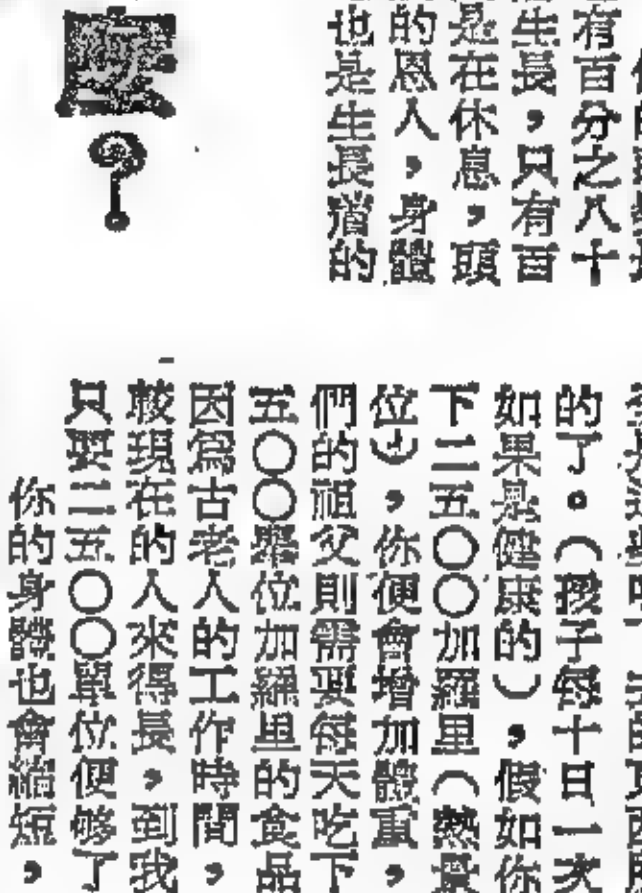 有百分之八十
生長，只有百
是在休息，頭
的恩人，身體
也是生長溜的
？
的了。（孩子每十日一次
如果是健康的），假如你
下二五〇〇加羅里（熱量
位），你便會增加體重，
們的祖父則需要每天吃下
五〇〇單位加羅里的食品
因爲古老人的工作時間，
較現在的人來得長，到我
只要二五〇〇單位便够了
你的身體也會縮短，